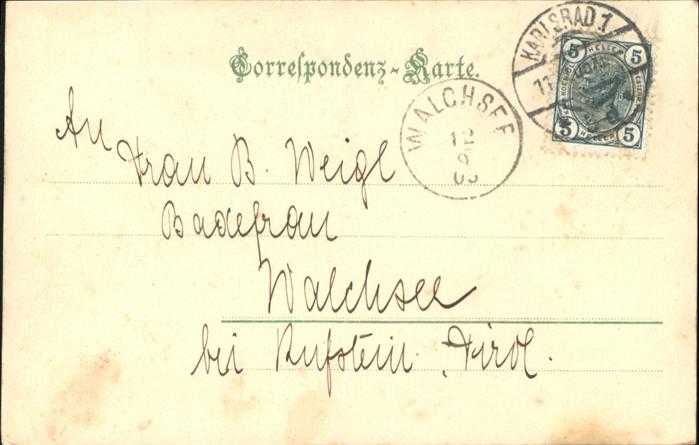 Correspondenz-Karte.
KARLSBAD 1
11
5 HELLER 5
5 HELLER 5
WALCHSEE
12
9
03
An
Frau B. Weigl
Badefrau
Walchsee
bei Kufstein. Tirol.